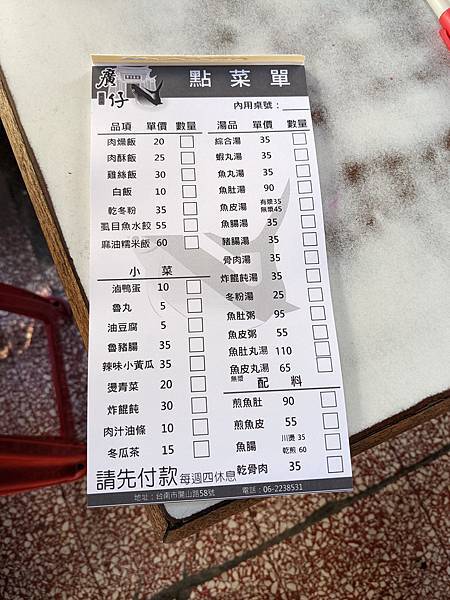 癀仔
點菜單
內用桌號：
品項 單價 數量
肉燥飯 20
肉酥飯 25
雞絲飯 30
白飯 10
乾冬粉 35
虱目魚水餃 55
麻油糯米飯 60
小菜
滷鴨蛋 10
魯丸 5
油豆腐 5
魯豬腸 35
辣味小黃瓜 35
燙青菜 20
炸餛飩 30
肉汁油條 10
冬瓜茶 15
湯品 單價 數量
綜合湯 35
蝦丸湯 35
魚丸湯 35
魚肚湯 90
魚皮湯 有漿35
無漿45
魚腸湯 35
豬腸湯 35
骨肉湯 35
炸餛飩湯 35
冬粉湯 25
魚肚粥 95
魚皮粥 55
魚肚丸湯 110
魚皮丸湯 65
無漿
配料
煎魚肚 90
煎魚皮 55
魚腸 川燙 35
乾煎 60
乾骨肉 35
請先付款 每週四休息
地址：台南市開山路58號 電話：06-2238531